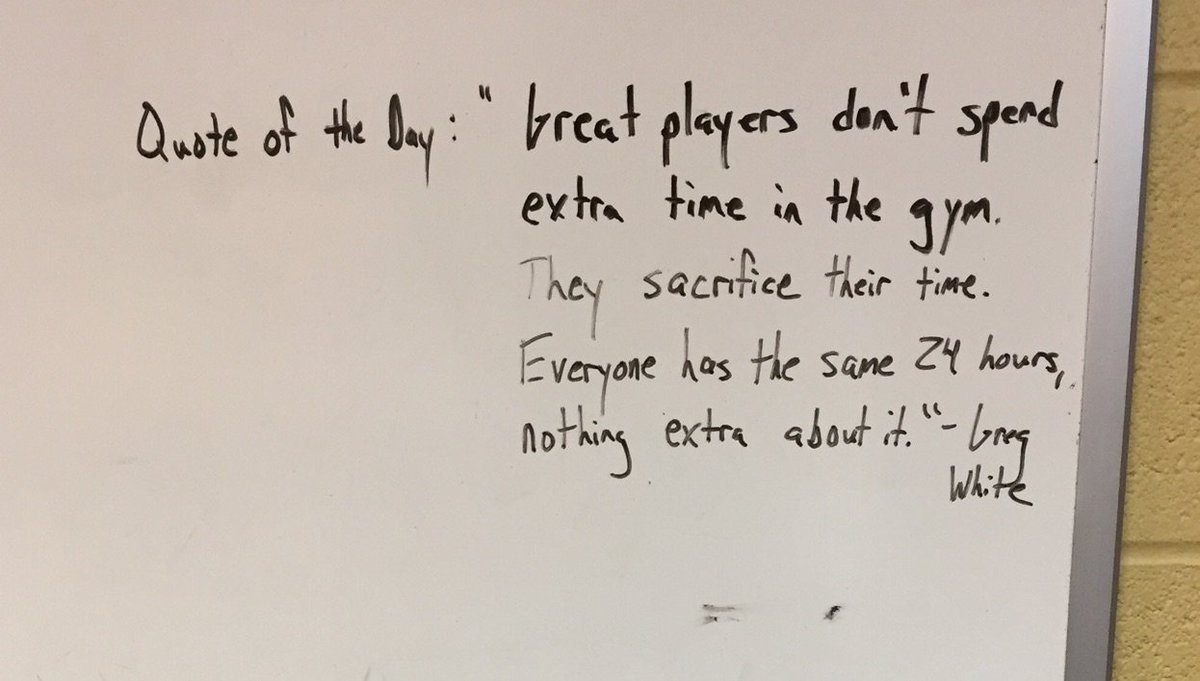 Quote of the Day: " Great players don't spend
extra time in the gym.
They sacrifice their time.
Everyone has the same 24 hours,
nothing extra about it."- Greg
White